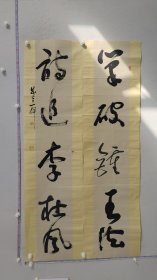 学破鍾王法
詩追李杜风